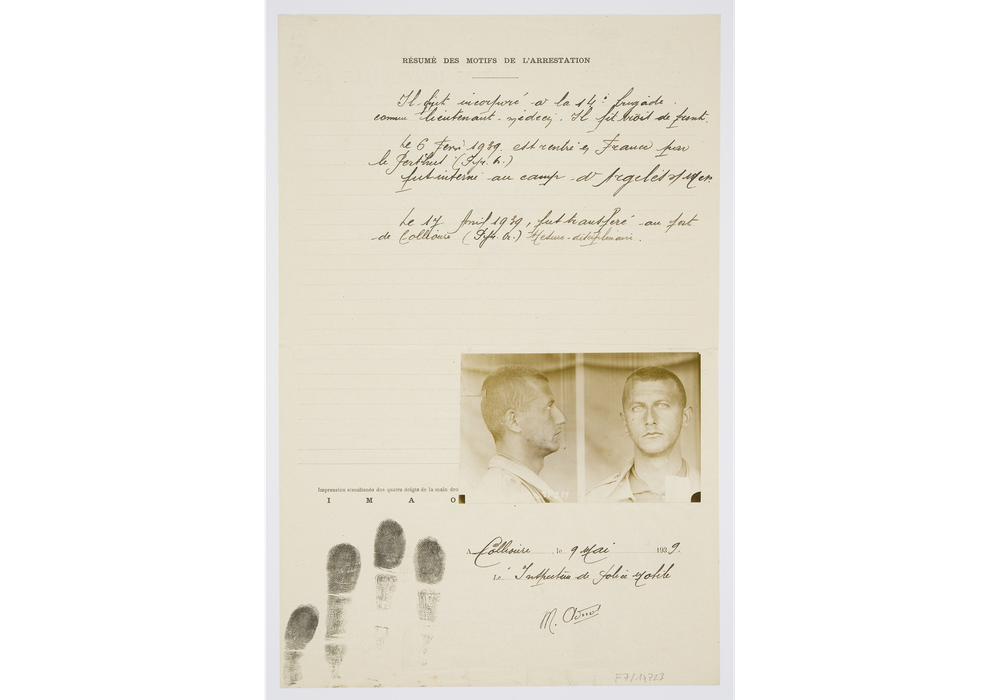 RÉSUMÉ DES MOTIFS DE L'ARRESTATION
Il fut incorporé à la 14e brigade
comme lieutenant-médecin. Il fit trois de front.
Le 6 1939. est rentré en France par
le Perthus (Pyr. Or.)
fut interné au camp d'Argelès s/ Mer.
Le 17 Avril 1939, fut transféré au fort
de Collioure (Pyr. Or.) Mesure disciplinaire.
Impression simultanée des quatre doigts de la main dro
I M A O
A Collioure, le 9 Mai 1939.
Le Inspecteur de Police Mobile
M.
F7/14723